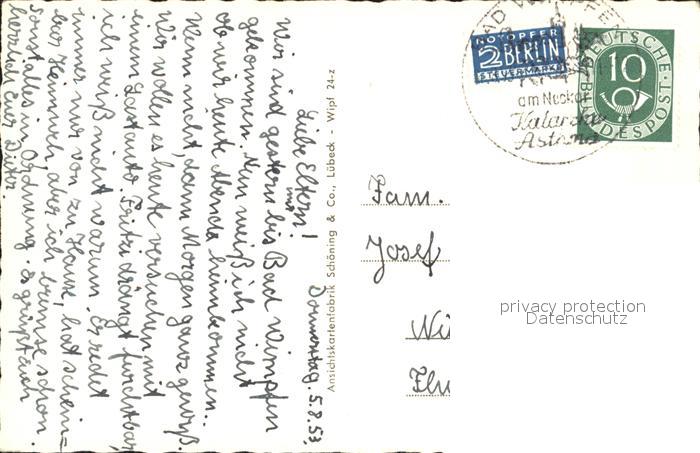 Donnerstag. 5.8.53
Liebe Eltern!
Wir sind gestern bis Bad Wimpfen
gekommen. Nun weiß ich nicht
ob wir heute Abend heimkommen.
Wenn nicht, dann Morgen ganz gewiß.
Wir wollen es heute versuchen mit
einem Lastauto. Fritz drängt furchtbar,
ich weiß nicht warum. Er redet
immer nur von zu Hause, hat schein=
bar Heimweh aber ich bremse schon.
Sonst alles in Ordnung. Es grüßt euch
herzlich Euer Dieter
Ansichtskartenfabrik Schöning & Co., Lübeck - Wipf 24-z
NOTOPFER
2 BERLIN
STEUERMARKE
BAD
am Neckar
Katarrhe
Asthma
DEUTSCHE
10
BUNDESPOST
Fam.
Josef
privacy protection
Datenschutz